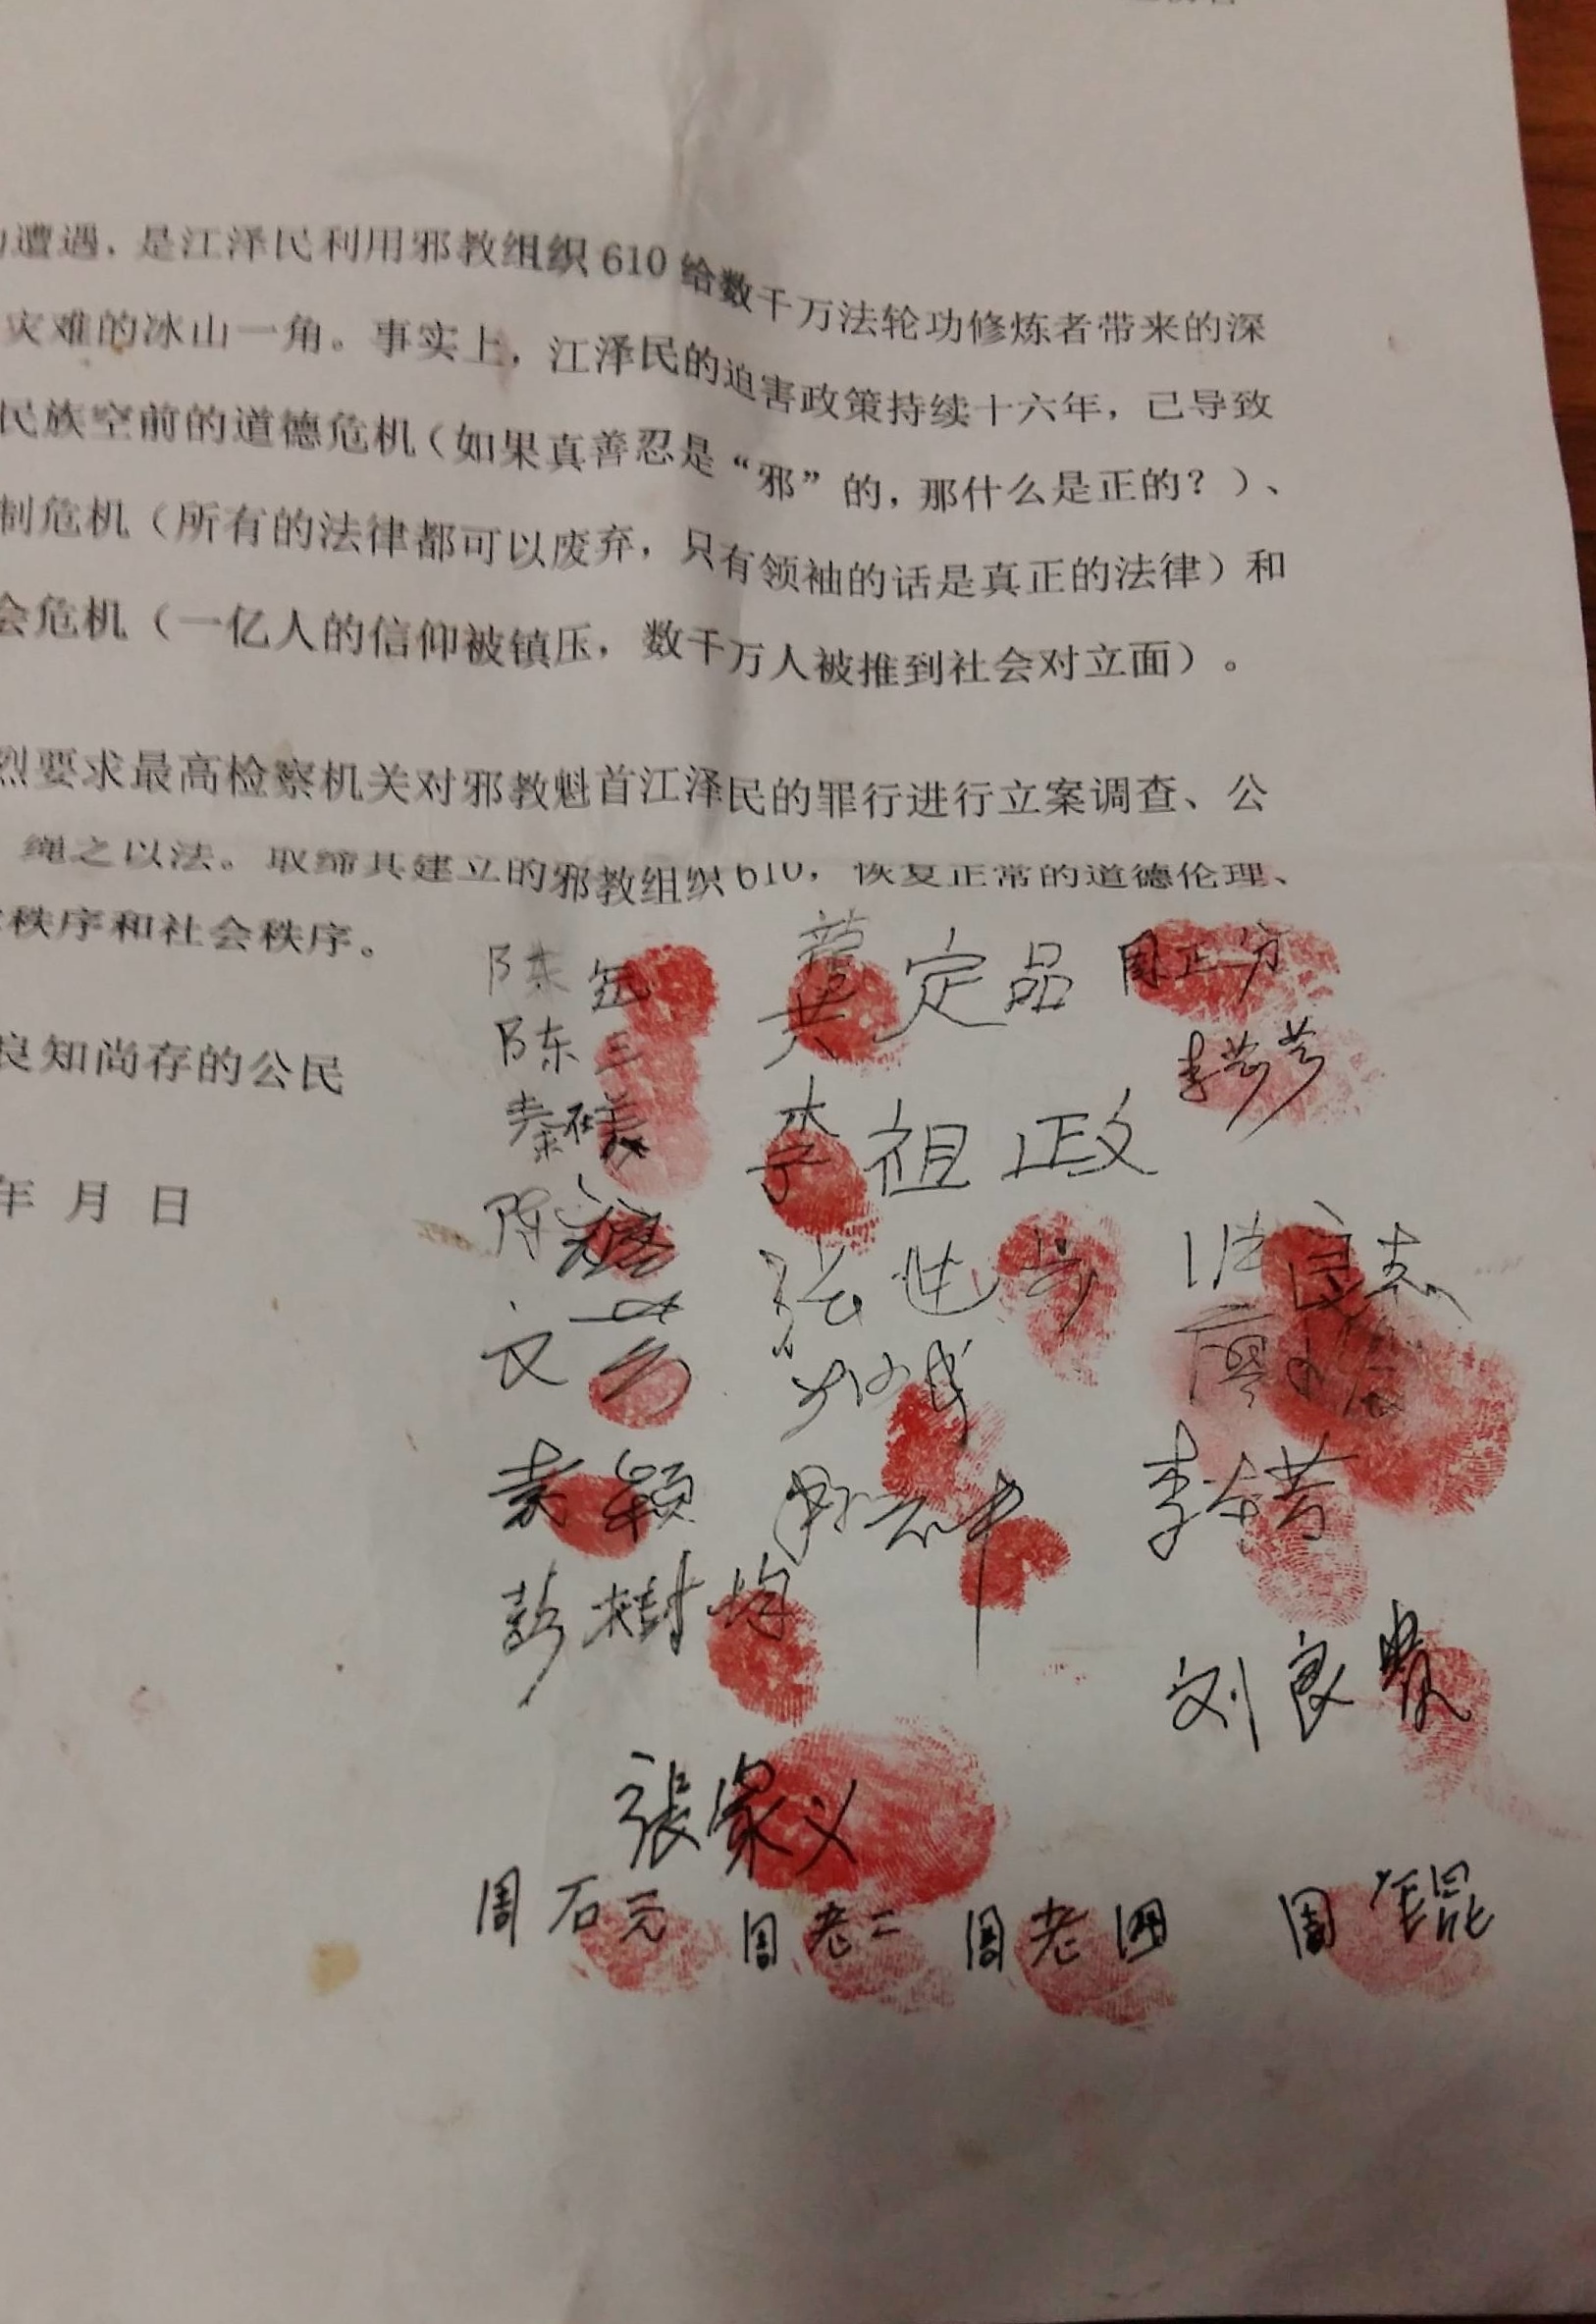 遭遇，是江泽民利用邪教组织610给数千万法轮功修炼者带来的深
灾难的冰山一角。事实上，江泽民的迫害政策持续十六年，己导致
民族空前的道德危机（如果真善忍是“邪”的，那什么是正的？）、
制危机（所有的法律都可以废弃，只有领袖的话是真正的法律）和
会危机（一亿人的信仰被镇压，数千万人被推到社会对立面）。
烈要求最高检察机关对邪教魁首江泽民的罪行进行立案调查、公
绳之以法。取缔其建立的邪教组织610，恢复正常的道德伦理、
秩序和社会秩序。
良知尚存的公民
年 月 日
陈 定品 周正芬
陈三
李祖政
张
袁颖
彭树均
刘良
張家义
周石元 周老二 周老四 周